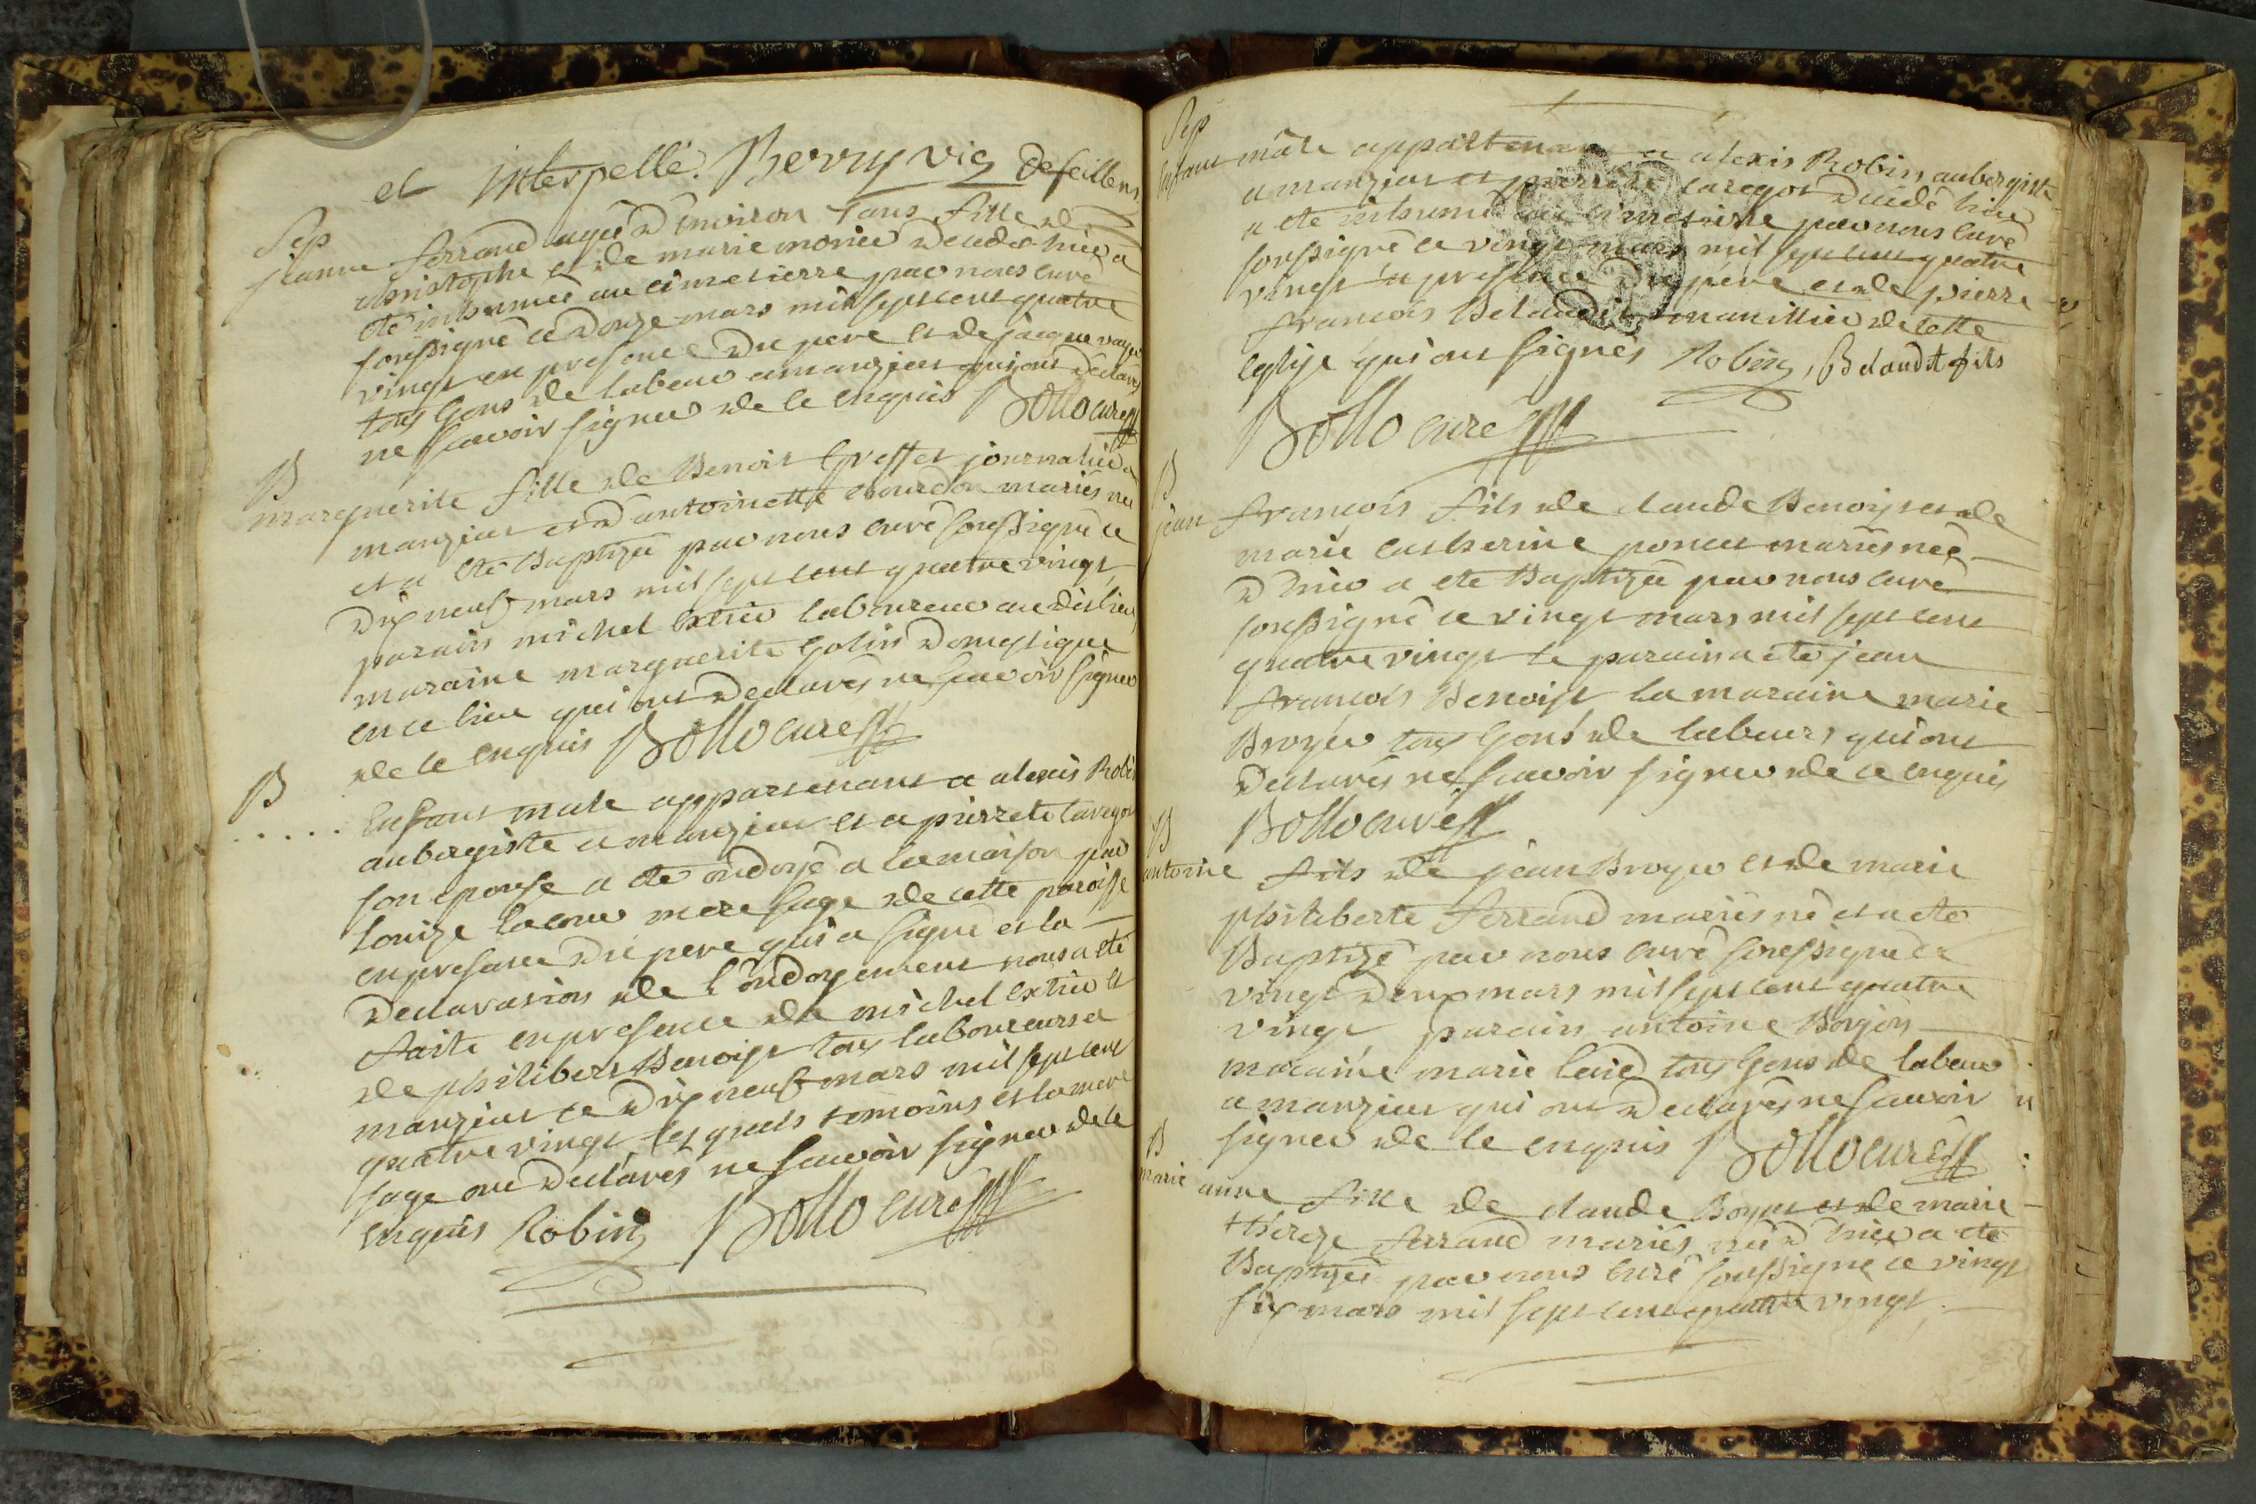 et Interpellé. Berry vic defeillens
Sep
jeanne ferrand agée d'environ sans fille de
christophe et de marie monier decedée hier a
été inhumée au cimetierre par nous curé
soussigné ce douze mars mil sept cent quatre
vingt en presence du pere et de jacque
tous Gens de labeur a manziat qui ont declarés
ne scavoir signer de ce enquis Bollo curé
B
marguerite fille de Benoit Greffet journalier a
manziat et d'antoinette bourdon mariés née
et a été Baptizée par nous curé soussigné ce
dix neuf mars mil sept cent quatre vingt
parain michel Extier laboureur au dit lieu
maraine marguerite Golin domestique
en ce lieu qui ont declarés ne scavoir signer
de ce enquis Bollo curé
B
..... Enfant male appartenant a alexis Robin
aubergiste a manziat et a pierrete
son epouse a été ondoyé a la maison par
Louize mere sage de cette paroisse
en presence du pere qui a signé et la
declaration de l'ondoyement nous a été
faite en presence de michel Extier et
de philibert Benoist tous laboureurs a
manziat ce dix neuf mars mil sept cent
quatre vingt les quels temoins et la mere
sage ont declarés ne scavoir signer de ce
enquis Robin Bollo curé
Sep
Enfant mâle appartenant a alexis Robin aubergiste
a manziat et pierrete decedé hier
a été inhumé au cimetierre par nous curé
soussigné ce vingt mars mil sept cent quatre
vingt en presence du pere et de pierre
françois Belaudit manillier de cette
Eglise qui ont signés Robin, Belaudit fils
Bollo curé
B
jean françois fils de claude Benoist et de
marie catherine poncet mariés née
d'hier a été Baptizée par nous curé
soussigné ce vingt mars mil sept cent
quatre vingt le parain a été jean
françois Benoist la maraine marie
Broyer tous Gens de labeurs qui ont
declarés ne scavoir signer de ce enquis
B Bollo curé
antoine fils de jean Broyer et de marie
philiberte ferrand mariés né et a été
Baptizé par nous curé soussigné ce
vingt deux mars mil sept cent quatre
vingt parain antoine Borjon
maraine marie tous Gens de labeur
a manziat qui ont declarés ne scavoir
signer de ce enquis Bollo curé
B
marie anne fille de claude Boyat et de marie
thereze ferrand mariés née d'hier a été
Baptizée par nous curé soussigné ce vingt
six mars mil sept cent quatre vingt